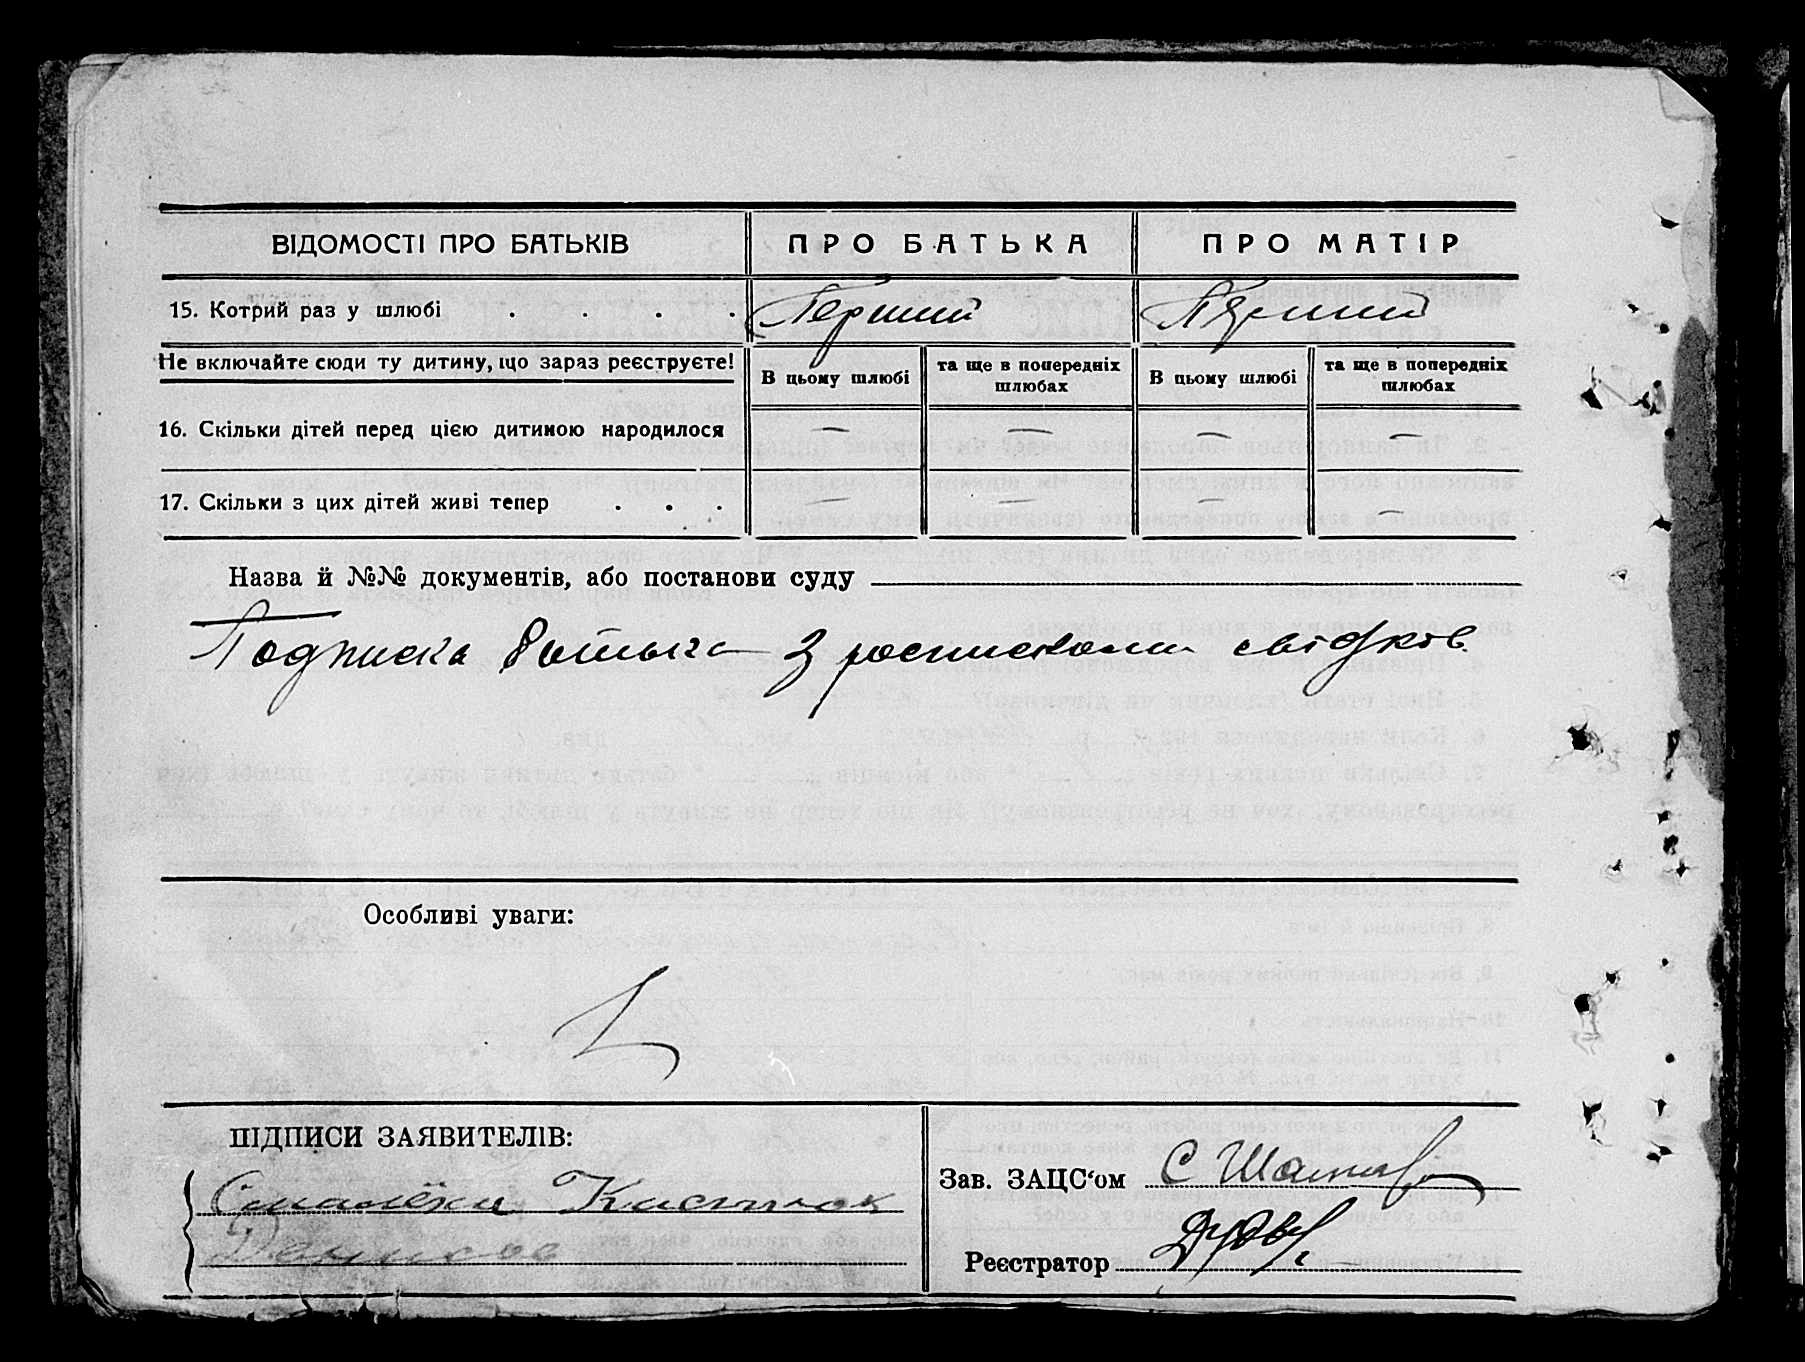 ВІДОМОСТІ ПРО БАТЬКІВ
ПРО БАТЬКА
ПРО МАТІР
15. Котрий раз у шлюбі . . . .
Перший
Перший
Не включайте сюди ту дитину, що зараз реєструєте!
В цьому шлюбі
та ще в попередніх шлюбах
В цьому шлюбі
та ще в попередніх шлюбах
16. Скільки дітей перед цією дитиною народилося
— — — —
17. Скільки з цих дітей живі тепер . . .
— — — —
Назва й №№ документів, або постанови суду
Подписка батька з росписками свідків
Особливі уваги:
ПІДПИСИ ЗАЯВИТЕЛІВ:
Зав. ЗАЦС‘ом
Реєстратор